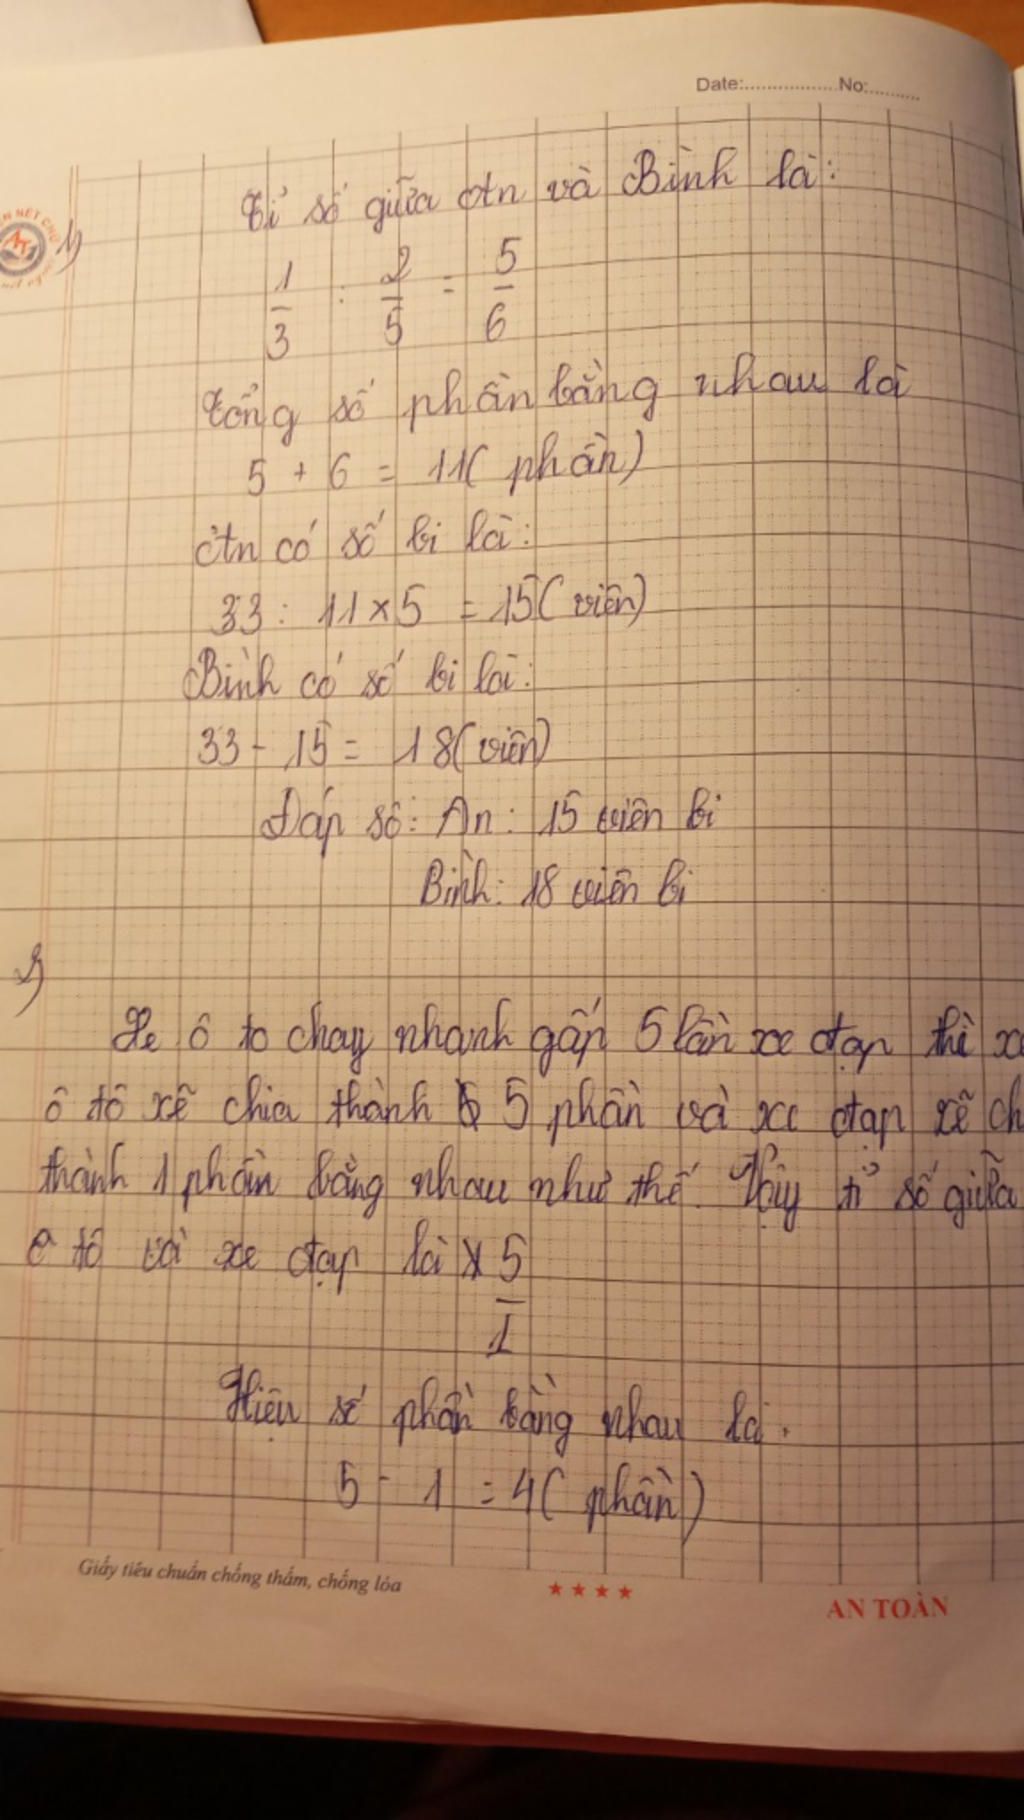 Date:..................No:..........
1) Tỉ số giữa An và Bình là:
1/3 : 2/5 = 5/6
Tổng số phần bằng nhau là
5 + 6 = 11( phần)
An có số bi là:
33 : 11 x 5 = 15( viên)
Bình có số bi là:
33 - 15 = 18( viên)
Đáp số: An: 15 viên bi
Bình: 18 viên bi
2)
Xe ô to chay nhanh gấp 5 lần xe đạp thì x
ô tô xẽ chia thành 5 phần và xe đạp xẽ ch
thành 1 phần bằng nhau như thế. Vậy tỉ số giữa
ô tô và xe đạp là 5/1
Hiệu số phần bằng nhau là.
5 - 1 = 4( phần)
Giấy tiêu chuẩn chống thấm, chống lóa
AN TOÀN